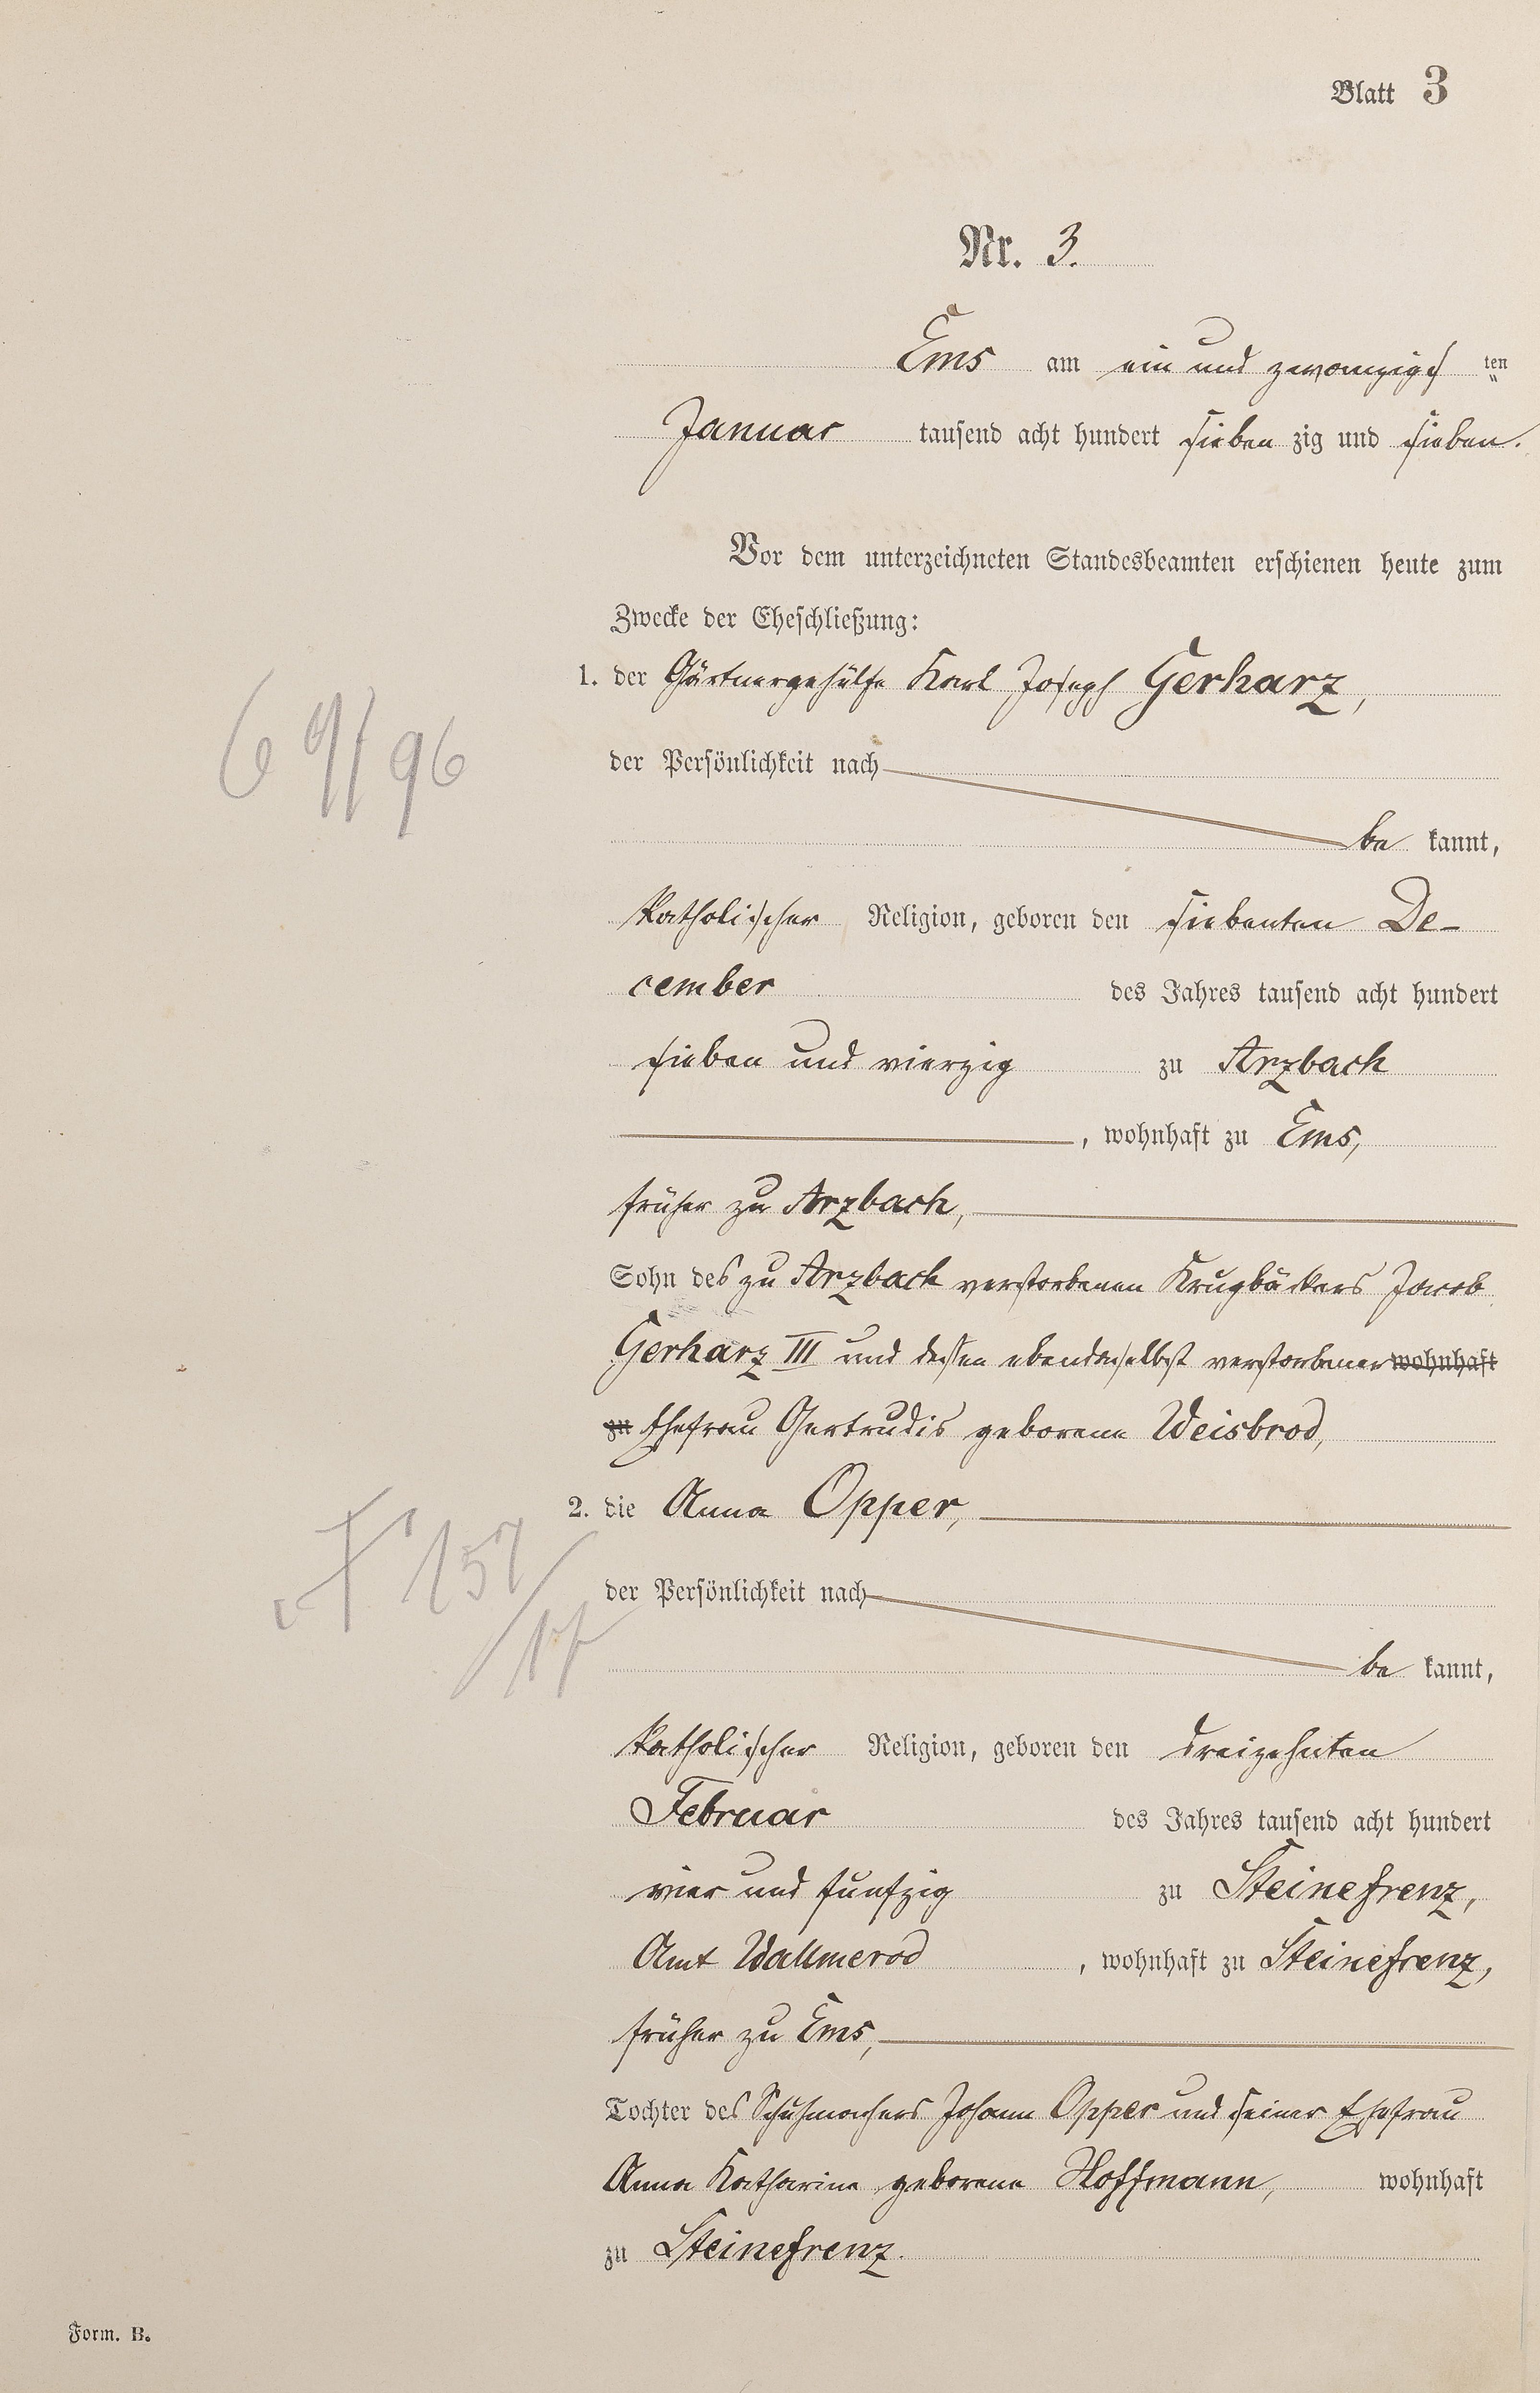 Blatt 3
Nr. 3.
Ems am ein und zwanzigs ten
Januar tausend acht hundert sieben zig und sieben.
Vor dem unterzeichneten Standesbeamten erschienen heute zum
Zwecke der Eheschließung:
1. der Gärtnergehülfe Karl Joseph Gerharz,
69/96
der Persönlichkeit nach
be kannt,
katholischer Religion, geboren den siebenten De-
cember des Jahres tausend acht hundert
sieben und vierzig zu Arzbach
, wohnhaft zu Ems,
früher zu Arzbach,
Sohn des zu Arzbach verstorbenen Krugbäckers Jacob
Gerharz III und dessen ebendaselbst verstorbener wohnhaft
zu Ehefrau Gertrudis geborene Weisbrod,
2. die Anna Opper,
der Persönlichkeit nach
be kannt,
katholischer Religion, geboren den dreizehnten
Februar des Jahres tausend acht hundert
vier und funfzig zu Steinefrenz,
Amt Wallmerod , wohnhaft zu Steinefrenz,
früher zu Ems,
Tochter des Schuhmachers Johann Opper und seiner Ehefrau
Anna Katharina geborene Hoffmann, wohnhaft
zu Steinefrenz.
Form. B.